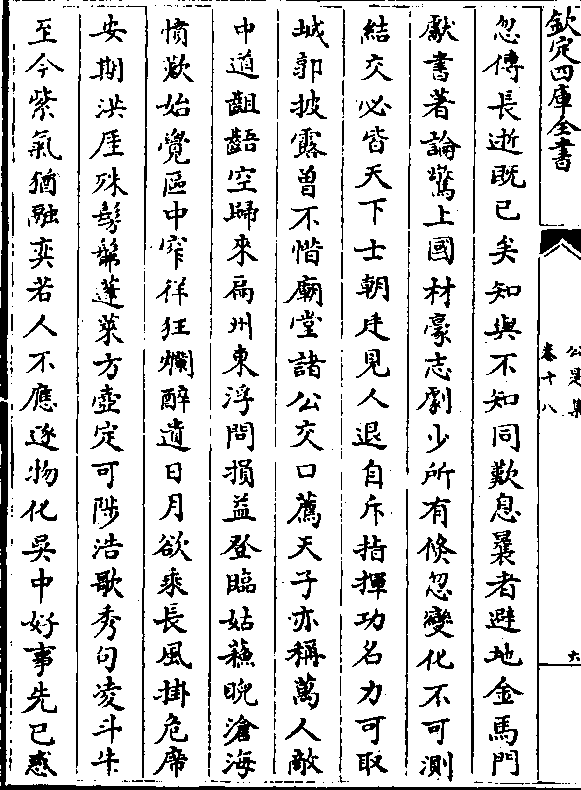 欽定四庫全書
公是集
卷十八
六
忽傳長逝既已矣知與不知同歎息曩者避地金馬門
獻書著論驚上國材豪志劇少所有倏忽變化不可測
結交必皆天下士朝廷見人退自斥指揮功名力可取
城郭披露曾不惜廟堂諸公交口薦天子亦稱萬人敵
中道齟齬空歸來扁州東浮問損益登臨姑蘇睨滄海
憤歎始覺區中窄徉狂爛醉遺日月欲乘長風掛危席
安期洪厓殊髣髴蓬萊方壺定可陟浩歌秀句凌斗牛
至今紫氣猶融奕若人不應逐物化吳中好事先已惑